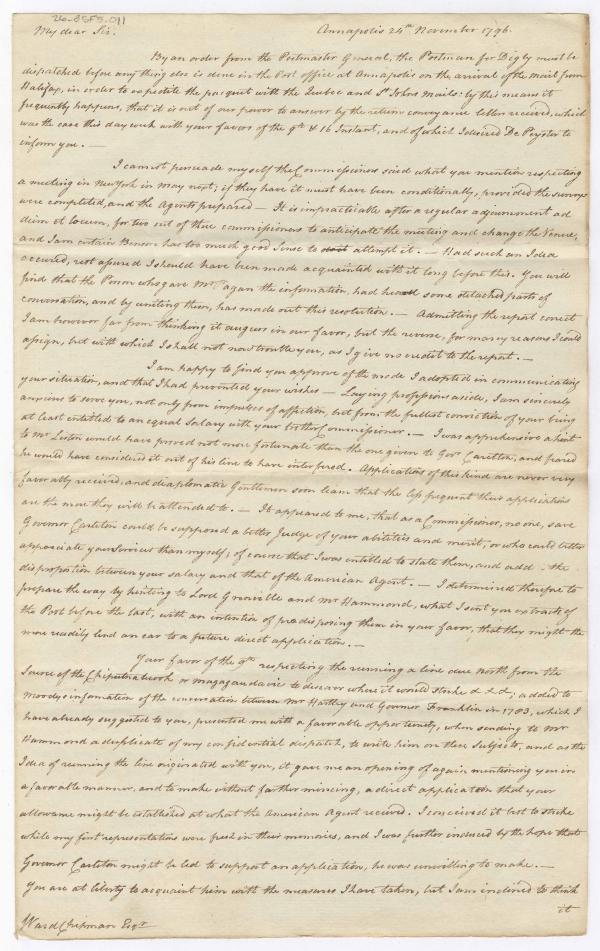 26-BSF5-011
My dear Sir. Annapolis 24th November 1796.
By an order from the Postmaster General, the Postman for Digby must be
dispatched before any thing else is done in the Post office at Annapolis on the arrival of the mail from
Halifax, in order to expedite the pacquet with the Quebec and St Johns Mails: by this means it
frequently happens, that it is out of our power to answer by the return conveyance letters received, which
was the case this day week with your favors of the 9th & 16 Instant, and of which I desired De Peyster to
inform you. —
I cannot persuade myself the Commissioners said what you mention respecting
a meeting in New York in May next; if they have it must have been conditionally, provided the surveys
were completed, and the Agents prepared — It is impracticable after a regular adjournment ad
diem et locum, for two out of three commissioners to anticipate the meeting and change the Venue,
and I am certain Benson has too much good Sense to attempt it. — Had such an Idea
occurred, rest assured I should have been made acquainted with it long before this. You will
find that the Person who gave Mr Pagan the information, had heard some detached parts of
conversation, and by uniting them, has made out this resolution. — Admitting the report correct
I am however far from thinking it augurs in our favor, but the reverse, for many reasons I could
assign, but with which I shall not now trouble you, as I give no credit to the report. —
I am happy to find you approve of the mode I adopted in communicating
your situation, and that I had prevented your wishes — Laying professions aside, I am sincerely
anxious to serve you, not only from impulses of affection, but from the fullest conviction of your being
at least entitled to an equal Salary with your brother Commissioner. — I was apprehensive a hint
to Mr Liston would have proved not more fortunate than the one given to Govr Carleton, and feared
he would have considered it out of his line to have interfered. Applications of this kind are never very
favorably received, and diaplomatic Gentlemen soon learn that the less frequent their applications
are the more they will be attended to. — It appeared to me, that as a Commissioner, no one, save
Governor Carleton could be supposed a better Judge of your abilities and merit, or who could better
appreciate your Services than myself, of course that I was entitled to state them, and add the
disproportion between your salary and that of the American Agent. — I determined therefore to
prepare the way by hinting to Lord Grenville and Mr Hammond, what I sent you extracts of
the Post before the last, with an intention of predisposing them in your favor, that they might the
more readily lend an ear to a future direct application. —
Your favor of the 9th respecting the running a line due north from the
Source of the Cheputnatecook or magaguadavic to discover where it would strike &c &c; added to
Moodys information of the conversation between Mr Hartley and Governor Franklin in 1783, which I
have already suggested to you, presented me with a favorable opportunity, when sending to Mr
Hammond a duplicate of my confidential dispatch, to write him on these Subjects, and as the
Idea of running the line originated with you, it gave me an opening of again mentioning you in
a favorable manner, and to make without farther mincing, a direct application that your
allowance might be established at what the American Agent received. I conceived it best to strike
while my first representations were fresh in their memories, and I was further induced by the hope that
Governor Carleton might be led to support an application, he was unwilling to make. —
You are at liberty to acquaint him with the measures I have taken, but I am inclined to think
it
Ward Chipman Esqr